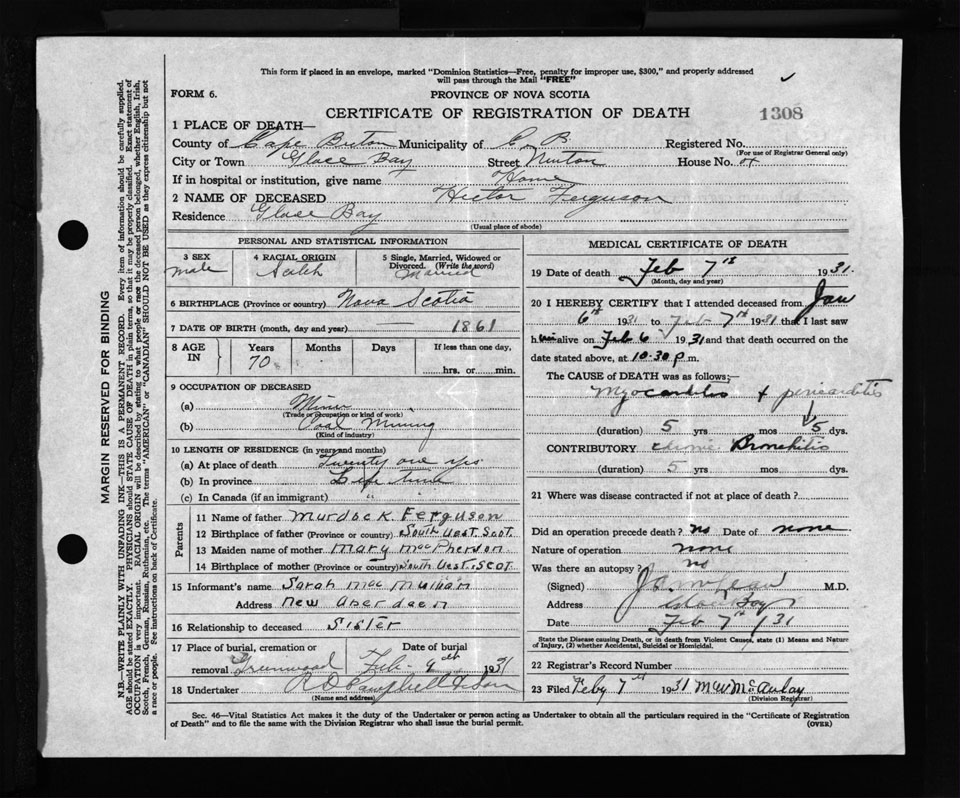 This form if placed in an envelope, marked "Dominion Statistics—Free, penalty for improper use, $300," and properly addressed
will pass through the Mail "FREE"
FORM 6.
PROVINCE OF NOVA SCOTIA
CERTIFICATE OF REGISTRATION OF DEATH
1308
1 PLACE OF DEATH—
County of Cape Breton Municipality of C. B. Registered No.
(For use of Registrar General only)
City or Town Glace Bay Street House No.
If in hospital or institution, give name Home
2 NAME OF DECEASED Hector Ferguson
Residence Glace Bay
(Usual place of abode)
PERSONAL AND STATISTICAL INFORMATION
3 SEX 4 RACIAL ORIGIN 5 Single, Married, Widowed or Divorced. (Write the word)
male Scotch Married
6 BIRTHPLACE (Province or country) Nova Scotia
7 DATE OF BIRTH (month, day and year) 1861
8 AGE IN Years Months Days If less than one day,
70 hrs. or min.
9 OCCUPATION OF DECEASED
(a) Miner
(Trade or occupation or kind of work)
(b) Coal Mining
(Kind of industry)
10 LENGTH OF RESIDENCE (in years and months)
(a) At place of death Twenty one yrs
(b) In province Life time
(c) In Canada (if an immigrant) "
Parents
11 Name of father Murdock Ferguson
12 Birthplace of father (Province or country) South Uest. Scot.
13 Maiden name of mother Mary MacPherson
14 Birthplace of mother (Province or country) South Uest. Scot.
15 Informant's name Sarah Mac
Address New Aberdeen
16 Relationship to deceased Sister
17 Place of burial, cremation or removal Date of burial
Greenwood Feb. 9th 1931
18 Undertaker Campbell & Son
(Name and address)
MEDICAL CERTIFICATE OF DEATH
19 Date of death Feb 7th 1931.
(Month, day and year)
20 I HEREBY CERTIFY that I attended deceased from Jan
6th 1931 to Feb 7th 1931 that I last saw
him alive on Feb 6 1931 and that death occurred on the
date stated above, at 10.30 p.m.
The CAUSE OF DEATH was as follows:—
Myocarditis + pericarditis
(duration) 5 yrs mos 5 dys.
CONTRIBUTORY chronic Bronchitis
(duration) 5 yrs mos dys.
21 Where was disease contracted if not at place of death?
Did an operation precede death? no Date of none
Nature of operation none
Was there an autopsy? no
(Signed) McLean M.D.
Address Glace Bay
Date Feb 7th /31
State the Disease causing Death, or in death from Violent Causes, state (1) Means and Nature
of Injury, (2) whether Accidental, Suicidal or Homicidal.
22 Registrar's Record Number
23 Filed Feby 7th 1931 M.W. McAulay
(Division Registrar)
Sec. 46—Vital Statistics Act makes it the duty of the Undertaker or person acting as Undertaker to obtain all the particulars required in the "Certificate of Registration
of Death" and to file the same with the Division Registrar who shall issue the burial permit. (OVER)
MARGIN RESERVED FOR BINDING
N.B.—WRITE PLAINLY WITH UNFADING INK—THIS IS A PERMANENT RECORD. Every item of information should be carefully supplied.
AGE should be stated EXACTLY. PHYSICIANS should STATE CAUSE OF DEATH in plain terms, so that it may be properly classified. Exact statement of
OCCUPATION is very important. RACIAL ORIGIN will be described by stating to what people or race the deceased person belonged, whether English, Irish,
Scotch, French, German, Russian, Ruthenian, etc. The terms "AMERICAN" or "CANADIAN" SHOULD NOT BE USED as they express citizenship but not
a race or people. See instructions on back of Certificate.